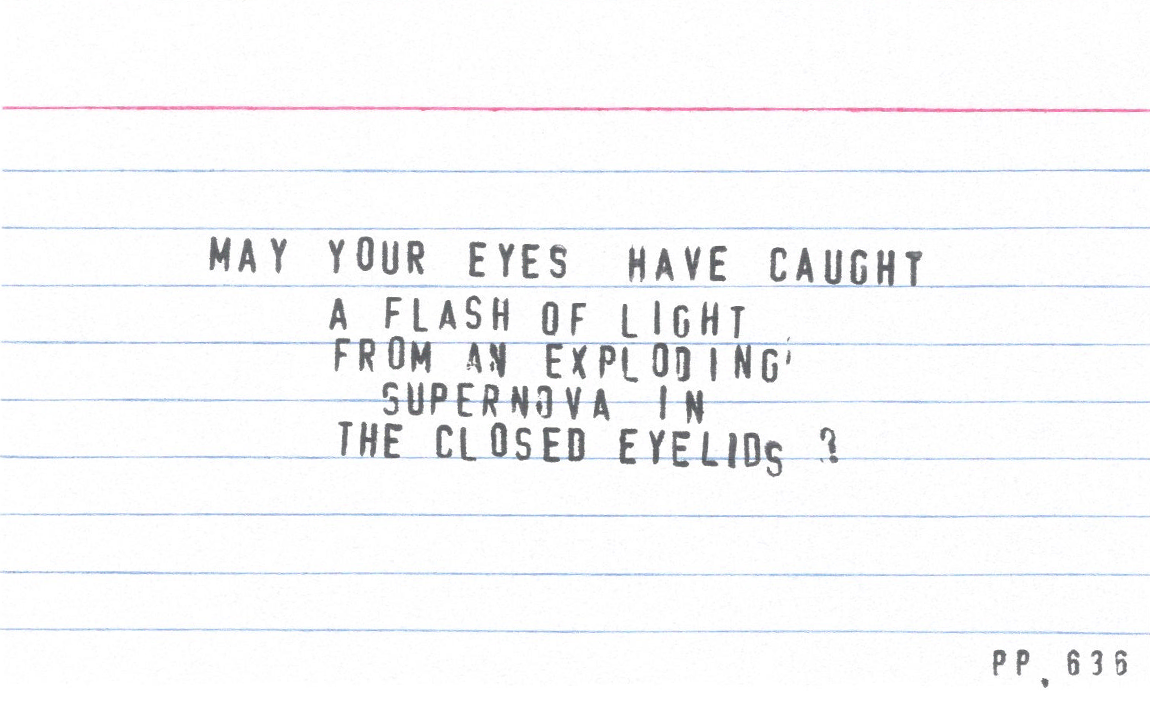 MAY YOUR EYES HAVE CAUGHT
A FLASH OF LIGHT
FROM AN EXPLODING'
SUPERNOVA IN
THE CLOSED EYELIDS ?
PP. 636